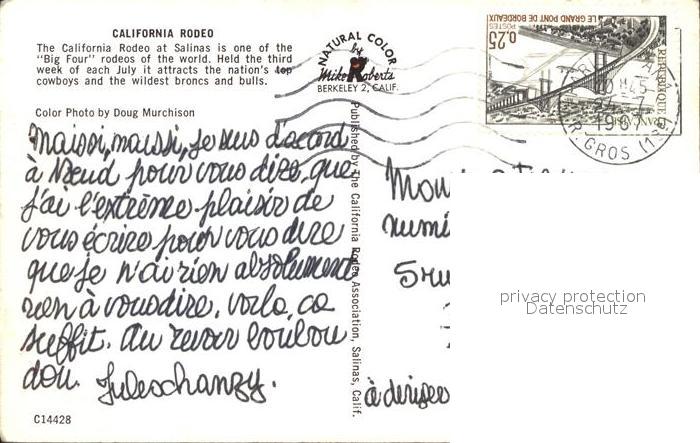 CALIFORNIA RODEO
The California Rodeo at Salinas is one of the
"Big Four" rodeos of the world. Held the third
week of each July it attracts the nation's top
cowboys and the wildest broncs and bulls.
Color Photo by Doug Murchison
NATURAL COLOR
by
Mike Roberts
BERKELEY 2, CALIF.
LE GRAND PONT DE BORDEAUX
POSTES
0,25
REPUBLIQUE FRANÇAISE
1967
GROS (13
Published by The California Rodeo Association, Salinas, Calif.
maissi, maissi, je suis d'accord
à pour vous dire, que
j'ai l'extrème plaisir de
vous écrire pour vous dire
que je n'ai rien absolument
rien à vous dire. voila, ca
suffit. au revoir loulou
dou. Juleschanzy.
privacy protection
Datenschutz
C14428